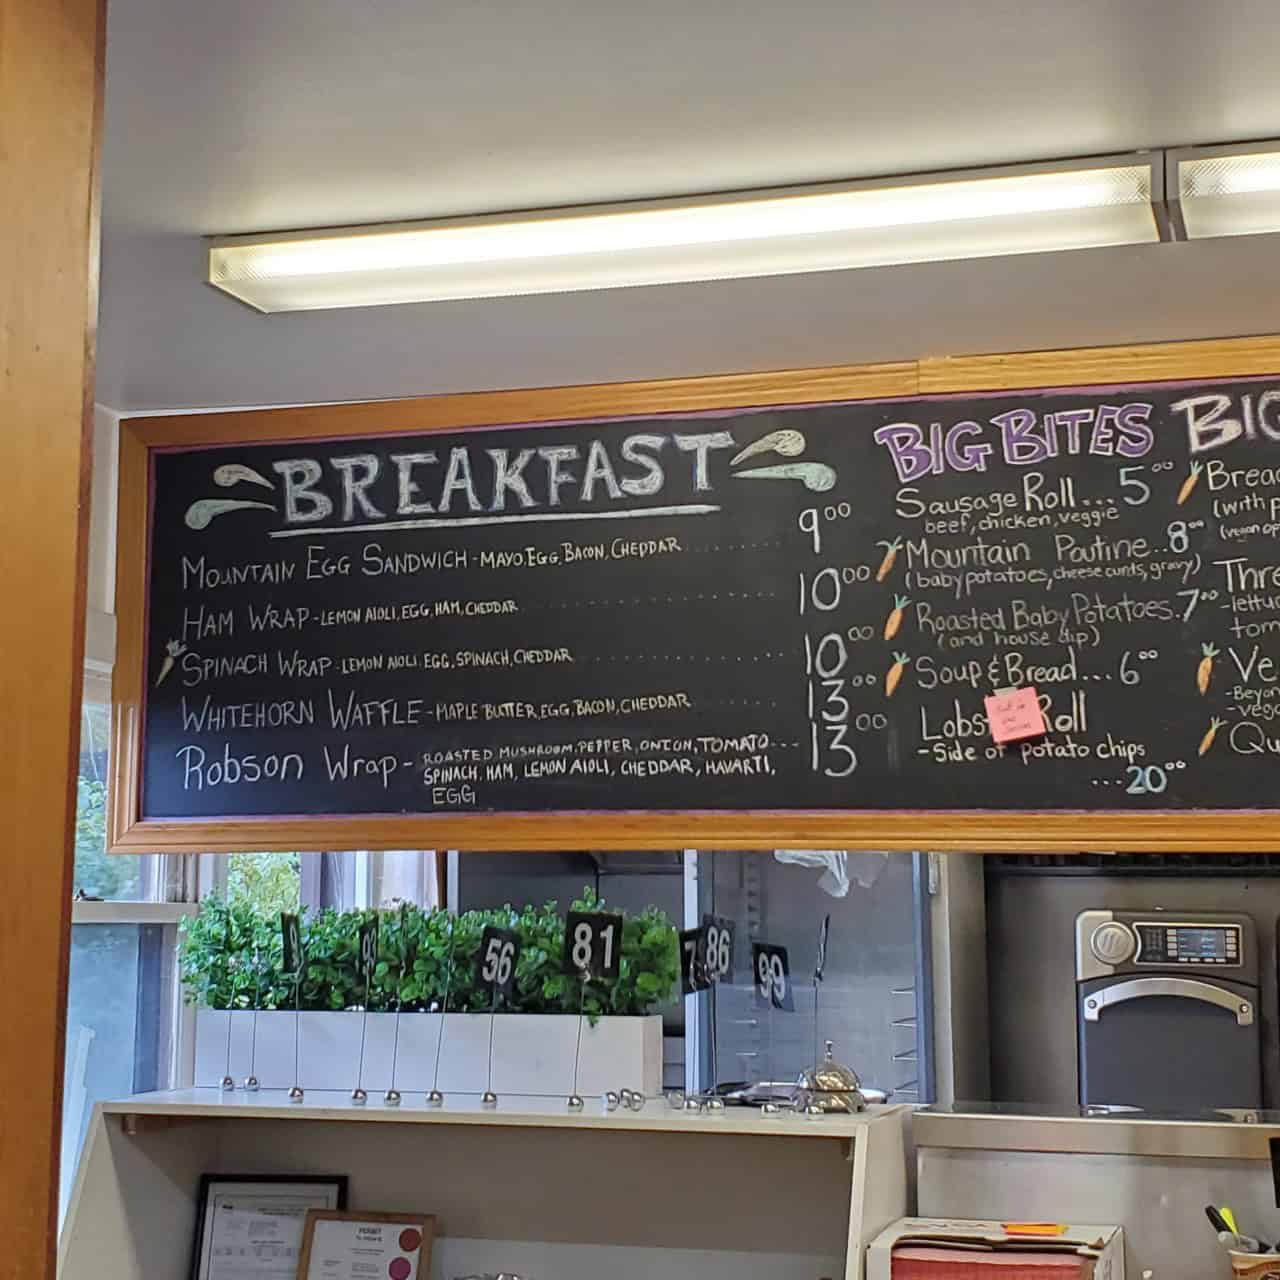 BREAKFAST
MOUNTAIN EGG SANDWICH - MAYO, EGG, BACON, CHEDDAR ........ 9⁰⁰
HAM WRAP - LEMON AIOLI, EGG, HAM, CHEDDAR ........ 10⁰⁰
SPINACH WRAP - LEMON AIOLI, EGG, SPINACH, CHEDDAR ........ 10⁰⁰
WHITEHORN WAFFLE - MAPLE BUTTER, EGG, BACON, CHEDDAR ........ 13⁰⁰
Robson Wrap - ROASTED MUSHROOM, PEPPER, ONION, TOMATO --- 13⁰⁰
SPINACH, HAM, LEMON AIOLI, CHEDDAR, HAVARTI,
EGG
BIG BITES
Sausage Roll... 5⁰⁰
beef, chicken, veggie
Mountain Poutine.. 8⁰⁰
(baby potatoes, cheese curds, gravy)
Roasted Baby Potatoes. 7⁰⁰
(and house dip)
Soup & Bread... 6⁰⁰
Lobs Roll
- Side of potato chips
...20⁰⁰
BIG
Bread
(with p
(vegan op
Thre
- lettuc
tom
Ve
- Beyon
- vega
Qu
9
93
56
81
7
86
99
PERMIT